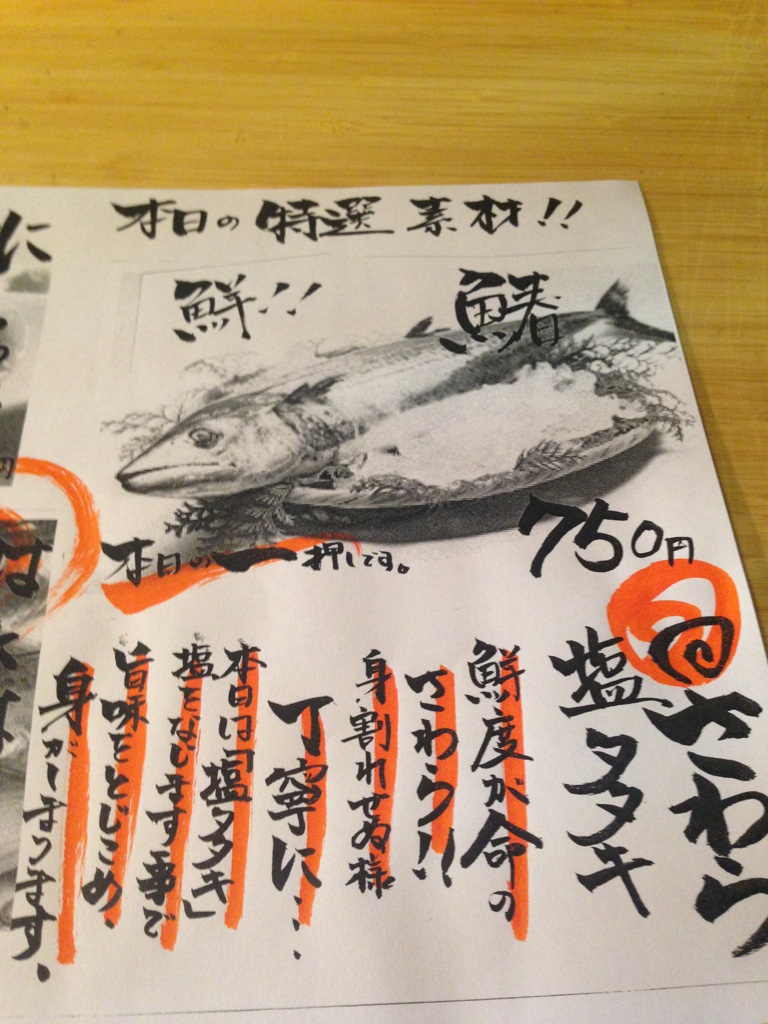 本日の特選素材!!
鮮!!
鰆
750円
さわら
塩タタキ
鮮度が命の
さわら!!
身割れせぬ様
丁寧に…
本日は「塩タタキ」
塩をなじます事で
旨味をとじこめ、
身がしまります。
本日の一押しです。
に
円
は